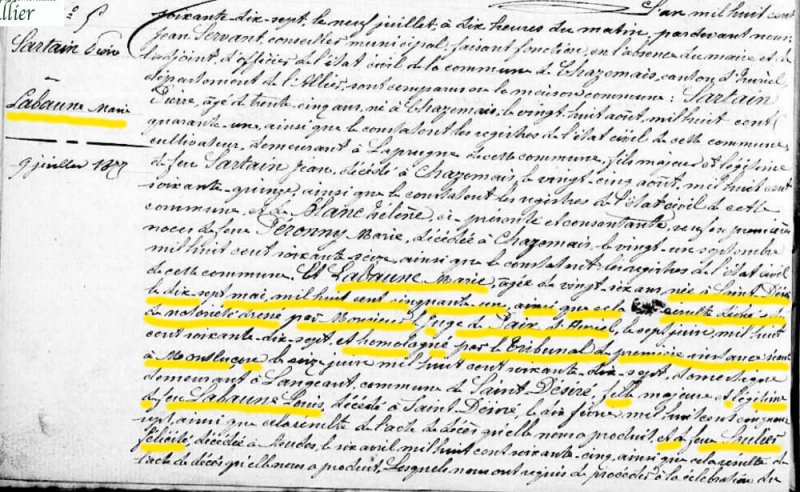 llier
Sartain Pierre
Labaune Marie
9 juillet 1877
L'an mil huit cent
soixante dix-sept, le neuf juillet, à dix heures du matin, pardevant nous
Jean Servant, conseiller municipal, faisant fonction, en l'absence du maire et de
l'adjoint, d'officier de l'état civil de la commune de Chazemais, canton d'Huriel
département de l'Allier, sont comparus en la maison commune : Sartain
Pierre, âgé de trente cinq ans, né à Chazemais, le vingt huit août, mil huit cent
quarante-un, ainsi que le constatent les registres de l'état civil de cette commune,
cultivateur, demeurant à Laprugne de cette commune, fils majeur et légitime
de feu Sartain Jean, décédé à Chazemais, le vingt-cinq août, mil huit cent
soixante-quinze, ainsi que le constatent les registres de l'état civil de cette
commune, et de Blanc Hélène, ci présente et consentante, veuf en premières
noces de feue Peronny Marie, décédée à Chazemais, le vingt un septembre
mil huit cent soixante seize, ainsi que le constatent les registres de l'état civil
de cette commune. Et Labaune Marie, âgée de vingt six ans, née à Saint Désiré
le dix sept mai, mil huit cent cinquante un, ainsi que cela résulte de l'acte
de notoriété dressé par Monsieur le Juge de Paix d'Huriel, le sept juin, mil huit
cent soixante-dix-sept, et homologué par le Tribunal de première instance séant
à Montluçon, le onze juin mil huit cent soixante dix-sept, domestique
demeurant à Langeant, commune de Saint Désiré, fille majeure et légitime
de feu Labaune Louis, décédé à Saint Désiré, le six février mil huit cent cinquante
sept, ainsi que cela résulte de l'acte de décès qu'elle nous a produit, et de feue
félicité, décédée à le six avril mil huit cent soixante-cinq, ainsi que cela résulte de
l'acte de décès qu'elle nous a produit. Lesquels nous ont requis de procéder à la célébration du